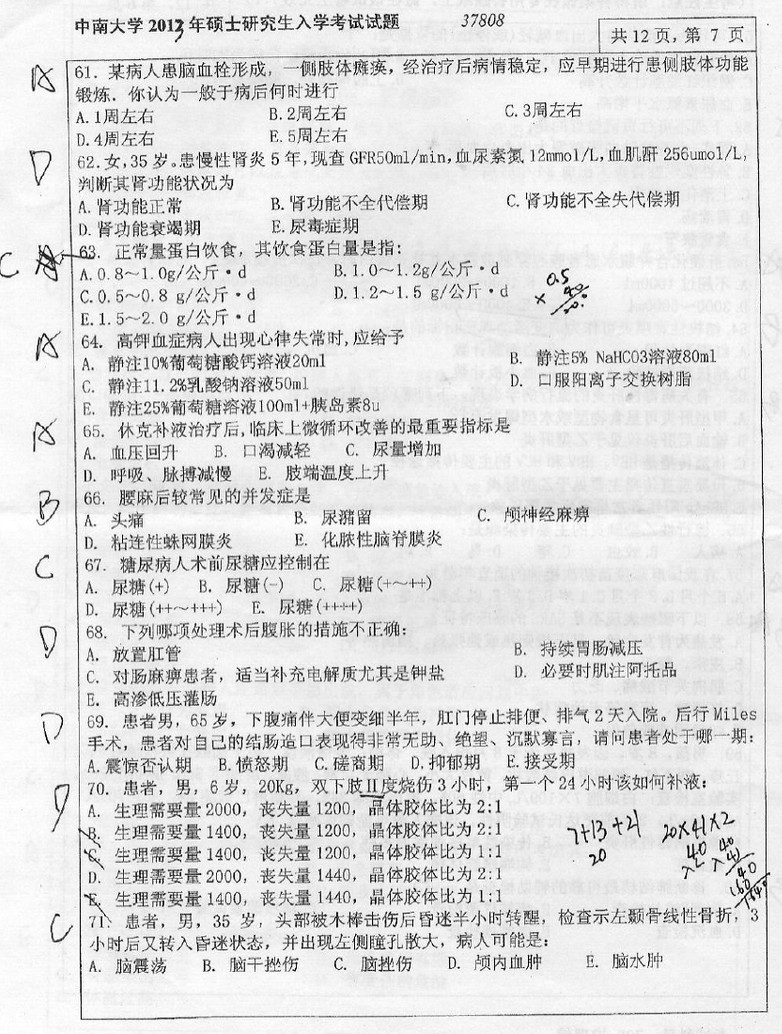 中南大学2013年硕士研究生入学考试试题
37808
共 12 页, 第 7 页
A 61. 某病人患脑血栓形成, 一侧肢体瘫痪, 经治疗后病情稳定, 应早期进行患侧肢体功能
锻炼. 你认为一般于病后何时进行
A. 1周左右 B. 2周左右 C. 3周左右
D. 4周左右 E. 5周左右
D 62. 女, 35 岁。患慢性肾炎 5 年, 现查 GFR50ml/min, 血尿素氮 12mmol/L, 血肌酐 256umol/L,
判断其肾功能状况为
A. 肾功能正常 B. 肾功能不全代偿期 C. 肾功能不全失代偿期
D. 肾功能衰竭期 E. 尿毒症期
C 63. 正常量蛋白饮食, 其饮食蛋白量是指:
A. 0.8～1.0g/公斤·d B. 1.0～1.2g/公斤·d
C. 0.5～0.8 g/公斤·d D. 1.2～1.5 g/公斤·d
E. 1.5～2.0 g/公斤·d
0.5
× 40
A 64. 高钾血症病人出现心律失常时, 应给予
A. 静注10%葡萄糖酸钙溶液20ml B. 静注5% NaHCO3溶液80ml
C. 静注11.2%乳酸钠溶液50ml D. 口服阳离子交换树脂
E. 静注25%葡萄糖溶液100ml+胰岛素8u
A 65. 休克补液治疗后, 临床上微循环改善的最重要指标是
A. 血压回升 B. 口渴减轻 C. 尿量增加
D. 呼吸、脉搏减慢 E. 肢端温度上升
B 66. 腰麻后较常见的并发症是
A. 头痛 B. 尿潴留 C. 颅神经麻痹
D. 粘连性蛛网膜炎 E. 化脓性脑脊膜炎
C 67. 糖尿病人术前尿糖应控制在
A. 尿糖(+) B. 尿糖(-) C. 尿糖(+～++)
D. 尿糖(++～+++) E. 尿糖(++++)
D 68. 下列哪项处理术后腹胀的措施不正确:
A. 放置肛管 B. 持续胃肠减压
C. 对肠麻痹患者, 适当补充电解质尤其是钾盐 D. 必要时肌注阿托品
E. 高渗低压灌肠
D 69. 患者男, 65 岁, 下腹痛伴大便变细半年, 肛门停止排便、排气 2 天入院。后行 Miles
手术, 患者对自己的结肠造口表现得非常无助、绝望、沉默寡言, 请问患者处于哪一期:
A. 震惊否认期 B. 愤怒期 C. 磋商期 D. 抑郁期 E. 接受期
D 70. 患者, 男, 6 岁, 20Kg, 双下肢II度烧伤 3 小时, 第一个 24 小时该如何补液:
A. 生理需要量 2000, 丧失量 1200, 晶体胶体比为 2:1
B. 生理需要量 1400, 丧失量 1200, 晶体胶体比为 2:1
C. 生理需要量 1400, 丧失量 1200, 晶体胶体比为 1:1
D. 生理需要量 2000, 丧失量 1440, 晶体胶体比为 2:1
E. 生理需要量 1400, 丧失量 1440, 晶体胶体比为 1:1
7+13+21
20
20×41×2
40
× 41
40
160
1640
C 71. 患者, 男, 35 岁, 头部被木棒击伤后昏迷半小时转醒, 检查示左颞骨线性骨折, 3
小时后又转入昏迷状态, 并出现左侧瞳孔散大, 病人可能是:
A. 脑震荡 B. 脑干挫伤 C. 脑挫伤 D. 颅内血肿 E. 脑水肿